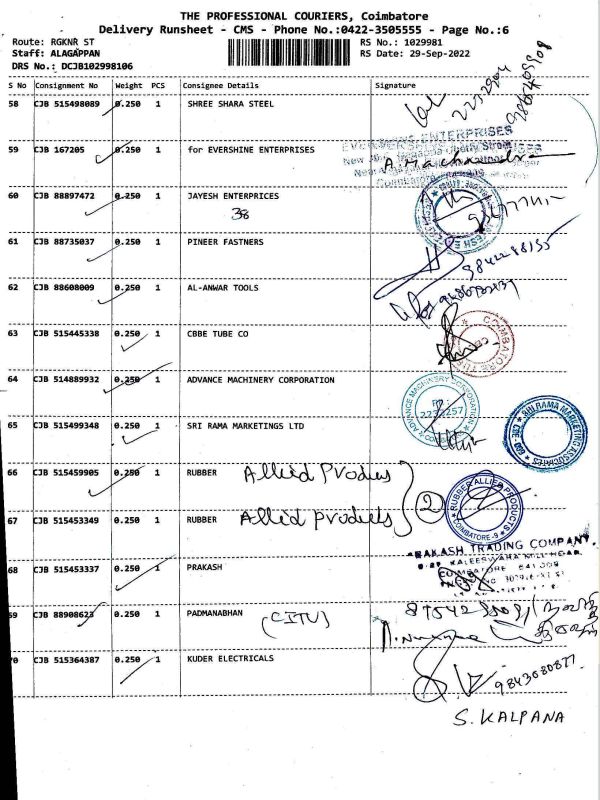 THE PROFESSIONAL COURIERS, Coimbatore
Delivery Runsheet - CMS - Phone No.:0422-3505555 - Page No.:6
Route: RGKNR ST
RS No.: 1029981
Staff: ALAGAPPAN
RS Date: 29-Sep-2022
DRS No.: DCJB102998106
S No Consignment No Weight PCS Consignee Details Signature
58 CJB 515498089 0.250 1 SHREE SHARA STEEL
59 CJB 167205 0.250 1 for EVERSHINE ENTERPRISES
60 CJB 88897472 0.250 1 JAYESH ENTERPRICES
38
61 CJB 88735037 0.250 1 PINEER FASTNERS
62 CJB 88608009 0.250 1 AL-ANWAR TOOLS
63 CJB 515445338 0.250 1 CBBE TUBE CO
64 CJB 514889932 0.250 1 ADVANCE MACHINERY CORPORATION
ADVANCE MACHINERY CORPORATION
65 CJB 515499348 0.250 1 SRI RAMA MARKETINGS LTD
SRI RAMA MARKETING ASSOCIATES
66 CJB 515459905 0.250 1 RUBBER Allied Produes
2
RUBBER ALLIED PRODUCTS COIMBATORE-9
67 CJB 515453349 0.250 1 RUBBER Allied products
PRAKASH TRADING COMPANY.
68 CJB 515453337 0.250 1 PRAKASH
69 CJB 88908623 0.250 1 PADMANABHAN (CITU)
70 CJB 515364387 0.250 1 KUDER ELECTRICALS
9843080877
S. KALPANA